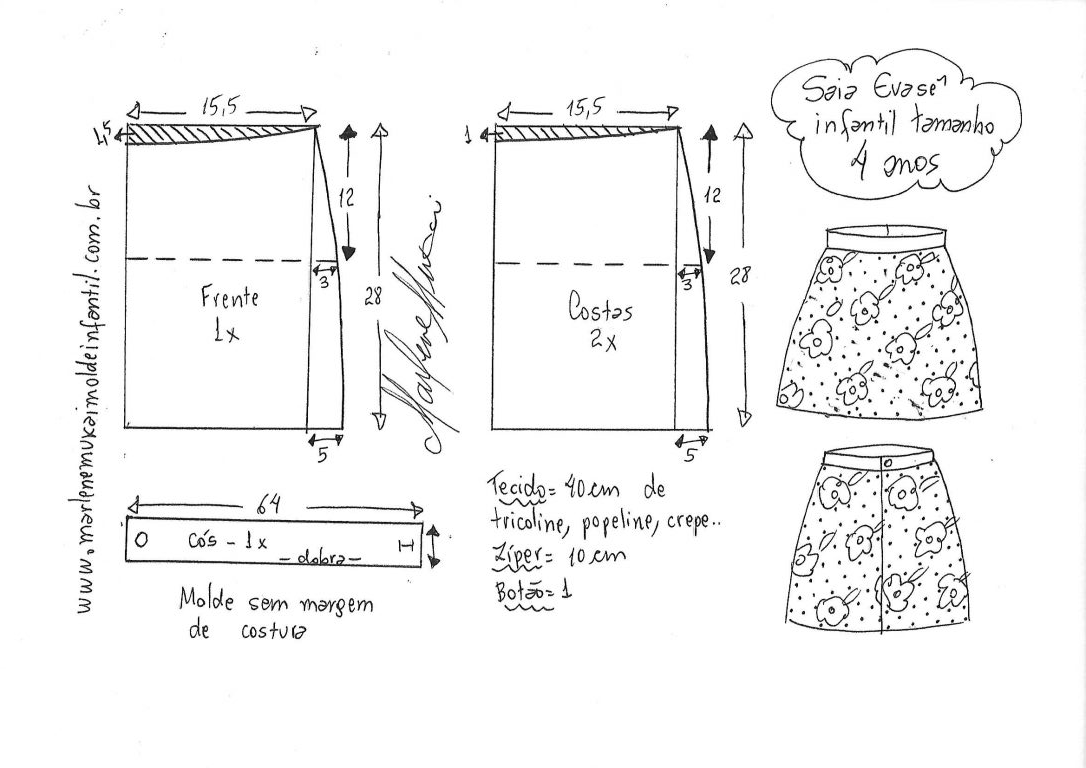 Saia Evasê
infantil tamanho
4 anos
15,5
1,5
12
3
28
5
Frente
1x
15,5
1
12
3
28
5
Costas
2x
www.marlenemukaimoldeinfantil.com.br
Marlene Mukai
64
cós - 1x
- dobra -
Molde sem margem
de costura
Tecido= 40 cm de
tricoline, popeline, crepe..
Zíper= 10 cm
Botão= 1